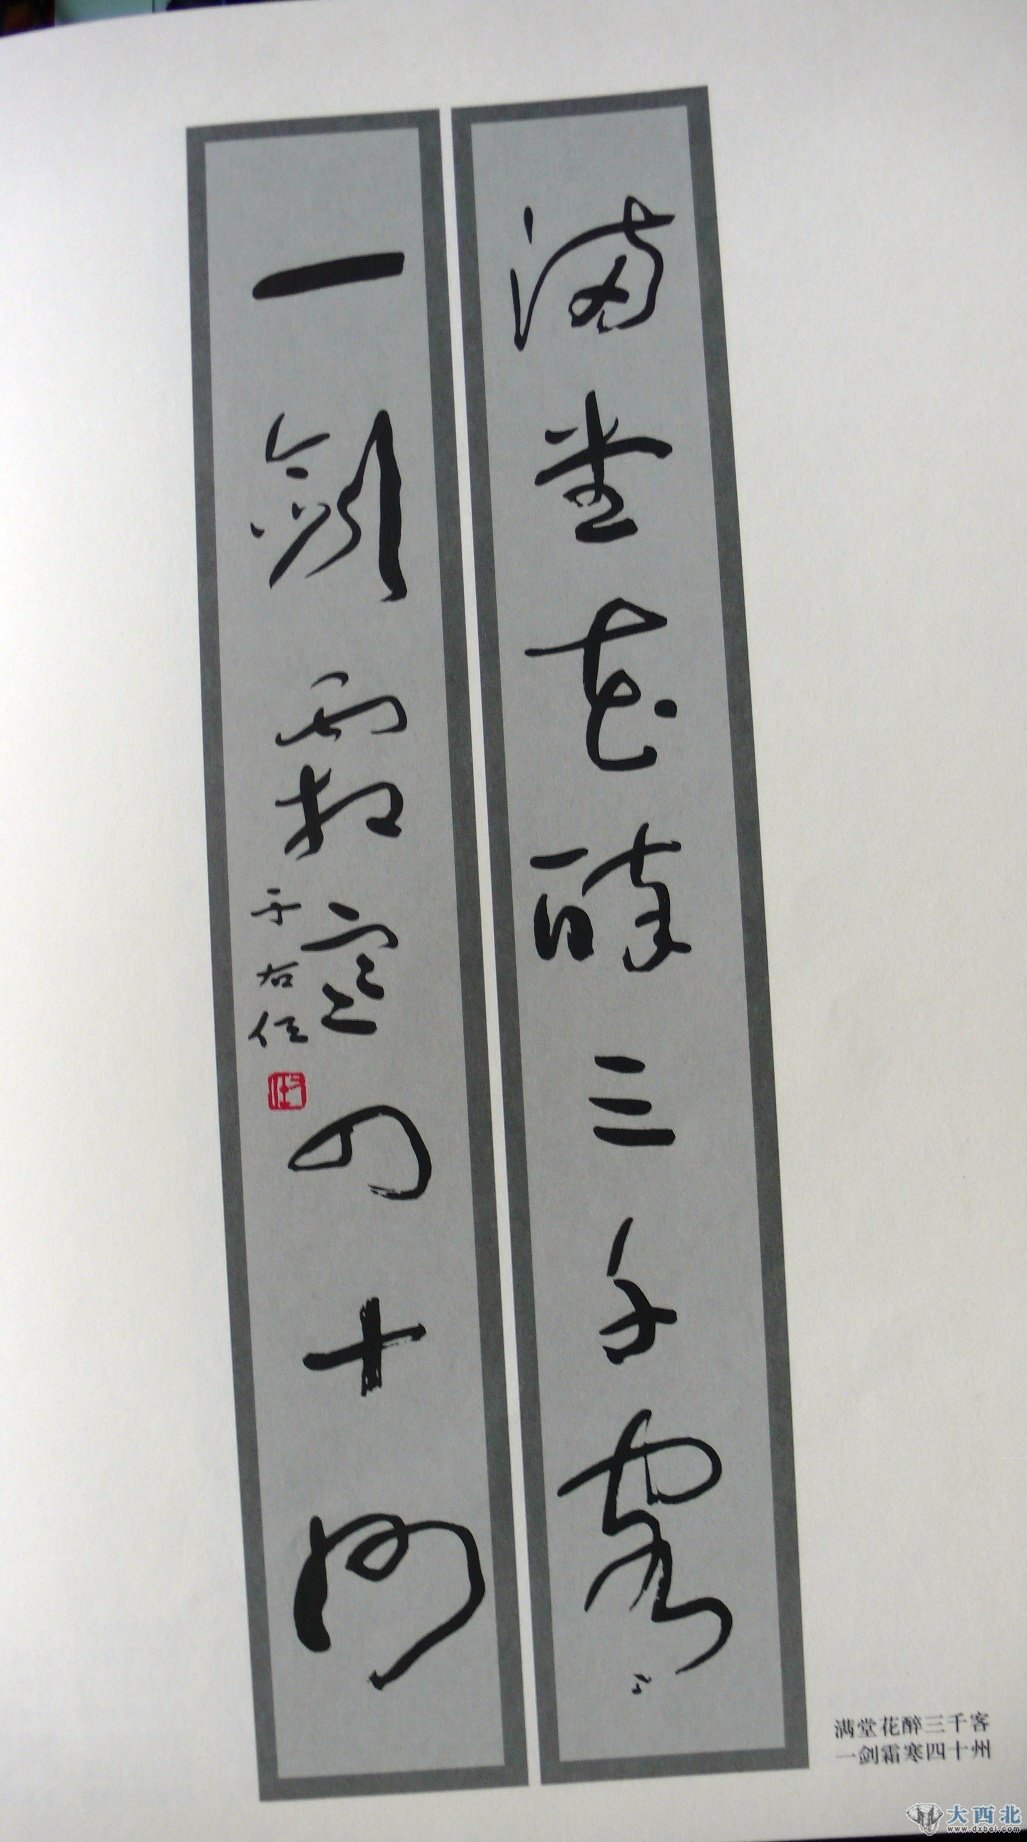 满堂花醉三千客
一剑霜寒四十州
于右任
满堂花醉三千客
一剑霜寒四十州
大西北
www.dxbei.com